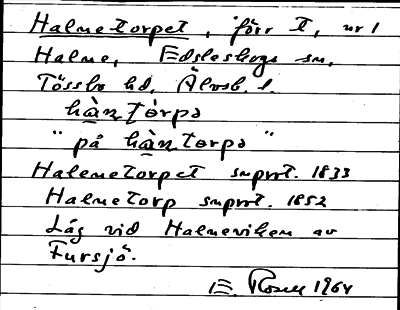 Halmetorpet, förr t, nr 1
Halme, Edsleskogs sn,
Tössbo hd, Älvsb. l.
hàn tórpə
"på hàn torpə"
Halemetorpet snprot. 1833
Halmetorp snprot. 1852
Låg vid Halmeviken av
Fursjö.
E. Rosell 1964